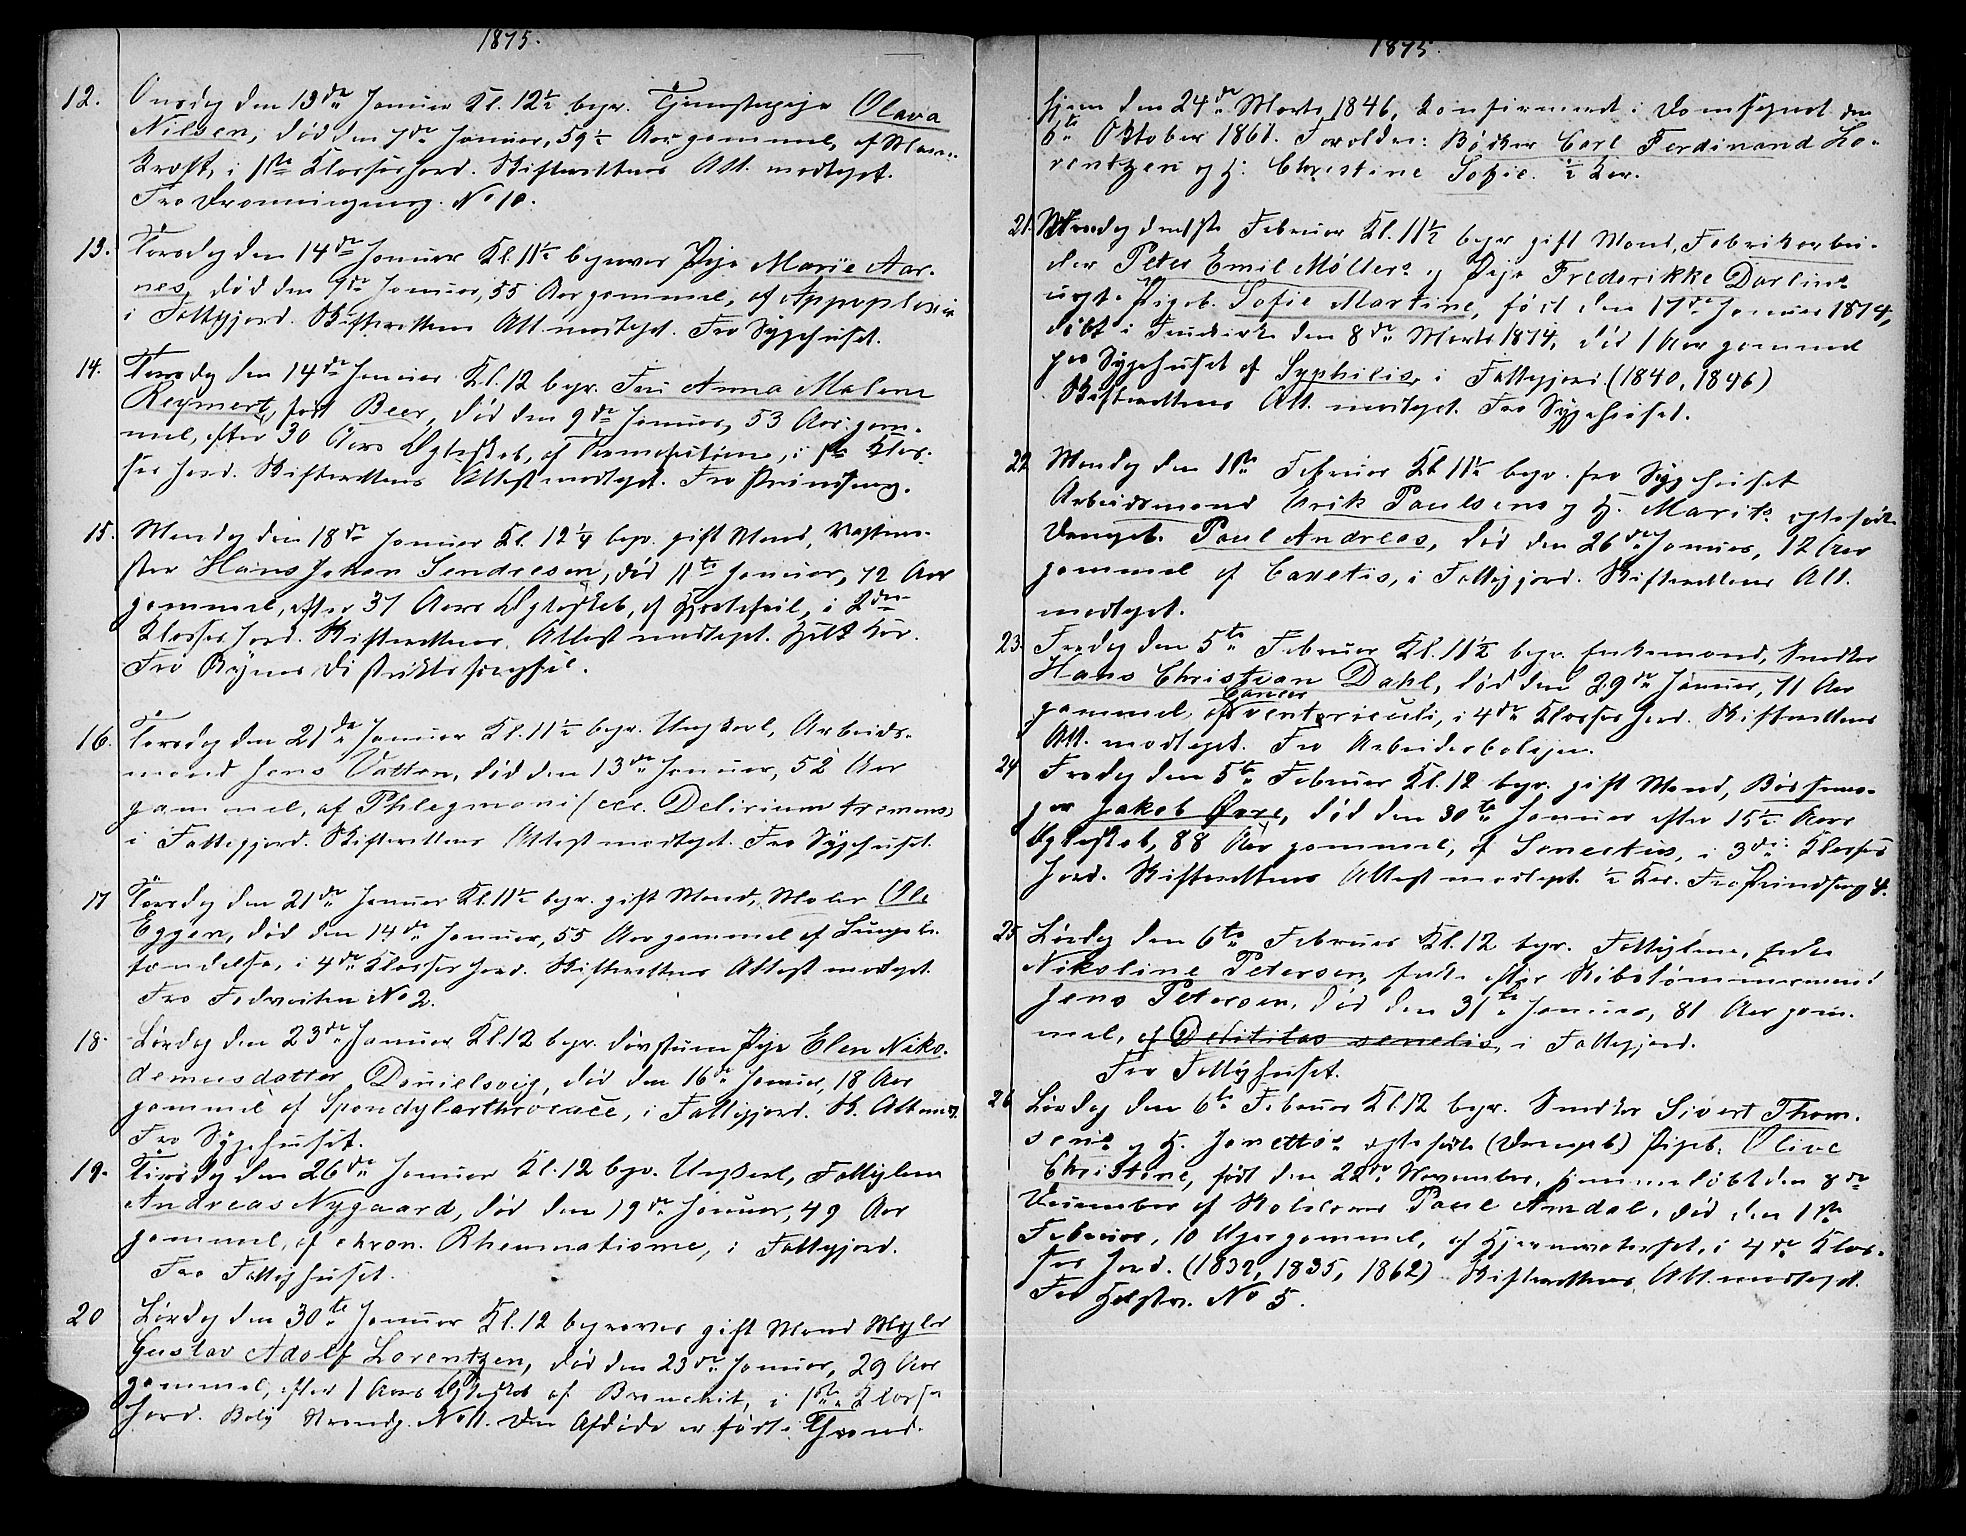 1875.
12. Onsdag den 13de Januar Kl. 12½ begr. Tjenestepige Olava
Nilsen, død den 7de Januar, 59½ Aar gammel, af Mave-
kræft, i 1ste Klasses Jord. Skifterettens Att. modtaget.
Fra Dronningensg. No 10.
13. Torsdag den 14de Januar Kl. 11½ begraves Pige Marie Aar-
nes, død den 9de Januar, 55 Aar gammel, af Appoplexia
i Fattigjord. Skifterettens Att. modtaget. Fra Sygehuset.
14. Torsdag den 14de Januar Kl. 12 begr. Fru Anna Malene
Reymert, født Beer, død den 9de Januar, 53 Aar gam-
mel, efter 30 Aars Ægteskab, af , i 1ste Klas-
ses Jord. Skifterettens Attest modtaget. Fra Prindsensg.
15. Mandag den 18de Januar Kl. 12¼ begr. gift Mand,
Hans Johan Sendresen, død 11te Januar, 72 Aar
gammel, efter 37 Aars Ægteskab, af Hjertefeil, i 2den
Klasses Jord. Skifterettens Attest modtaget. Helt Kor.
Fra Byens Distriktsfængsel.
16. Torsdag den 21de Januar Kl. 11½ begr. Ungkarl, Arbeids-
mand Jens Vatten, død den 13de Januar, 52 Aar
gammel, af Phlegmoni / acc. Delirium tremens,
i Fattigjord. Skifterettens Attest modtaget. Fra Sygehuset.
17 Torsdag den 21de Januar Kl. 11½ begr. gift Mand, Maler Ole
Eggen, død den 14de Januar, 55 Aar gammel af Lungebe-
tændelse, i 4de Klasses Jord. Skifterettens Attest modtaget.
Fra Fedveiten No 2.
18. Lørdag den 23de Januar Kl. 12 begr. døvstum Pige Elen Niko-
demusdatter Danielsvig, død den 16de Januar, 18 Aar
gammel af Spondylarthrocace, i Fattigjord. Sk. Att. m.
Fra Sygehuset.
19. Tirsdag den 26de Januar Kl. 12 begr. Ungkarl, Fattiglem
Andreas Nygaard, død den 19de Januar, 49 Aar
gammel, af chron. Rheumatisme, i Fattigjord.
Fra Fattighuset.
20 Lørdag den 30te Januar Kl. 12 begraves gift Mand Mægler
Gustav Adolf Lorentzen, død den 23de Januar, 29 Aar
gammel, efter 1 Aars Ægteskab af Bronchit, i 1ste Klasses
Jord. Bolig Strandg. No 11. Den Afdøde er født i Thrond-
1875.
hjem den 24de Marts 1846, konfirmeret i Domsognet den
6te Oktober 1861. Forældre: Bødker Carl Ferdinand Lo-
rentzen og H. Christine Sofie. ½ Kor.
21. Mandag den 1ste Februar Kl. 11½ begr. gift Mand, Fabrikarbei-
der Peter Emil Møllers og Pige Frederikke Dorlins
uægte Pigeb. Sofie Martine, født den 17de Januar 1874,
døbt i Fruekirke den 8de Marts 1874, død 1 Aar gammel
paa Sygehuset af Syphilis, i Fattigjord (1840, 1846)
Skifterettens Att. modtaget. Fra Sygehuset.
22 Mandag den 1ste Februar Kl. 11½ begr. fra Sygehuset
Arbeidsmand Erik Paulsens og H. Marits ægtefødte
Drengeb. Paul Andreas, død den 26de Januar, 12 Aar
gammel af Caxetis, i Fattigjord. Skifterettens Att.
modtaget.
23. Fredag den 5te Februar Kl. 11½ begr. Enkemand, Snedker
Hans Christian Dahl, død den 29de Januar, 71 Aar
gammel, af Cancer ventriculi, i 4de Klasses Jord. Skifterettens
Att. modtaget. Fra Arbeiderboligen.
24 Fredag den 5te Februar Kl. 12 begr. gift Mand, Børsema-
ger Jakob Øxre, død den 30te Januar efter 15½ Aars
Ægteskab, 88 Aar gammel, af Senectus, i 3die Klasses
Jord. Skifterettens Attest modtaget. ½ Kor. Fra Prindsensg 4.
25 Lørdag den 6te Februar Kl. 12 begr. Fattiglem, Enke
Nikoline Petersen, Enke efter Skibstømmermand
Jens Petersen, død den 31te Januar, 81 Aar gam-
mel, af Debilitas senelis, i Fattigjord.
Fra Fattighuset.
26 Lørdag den 6te Februar Kl. 12 begr. Snedker Sivert Thom-
sens og H. Janettes ægtefødte (Drengeb) Pigeb. Olive
Christine, født den 22de November, hjemmedøbt den 8de
December af Skolelærer Paul Amdal, død den 1ste
Februar, 10 Uger gammel, af Hjernevatersot, i 4de Klas-
ses Jord. (1832, 1835, 1862) Skifterettens Att. modtaget.
Fra No 5.